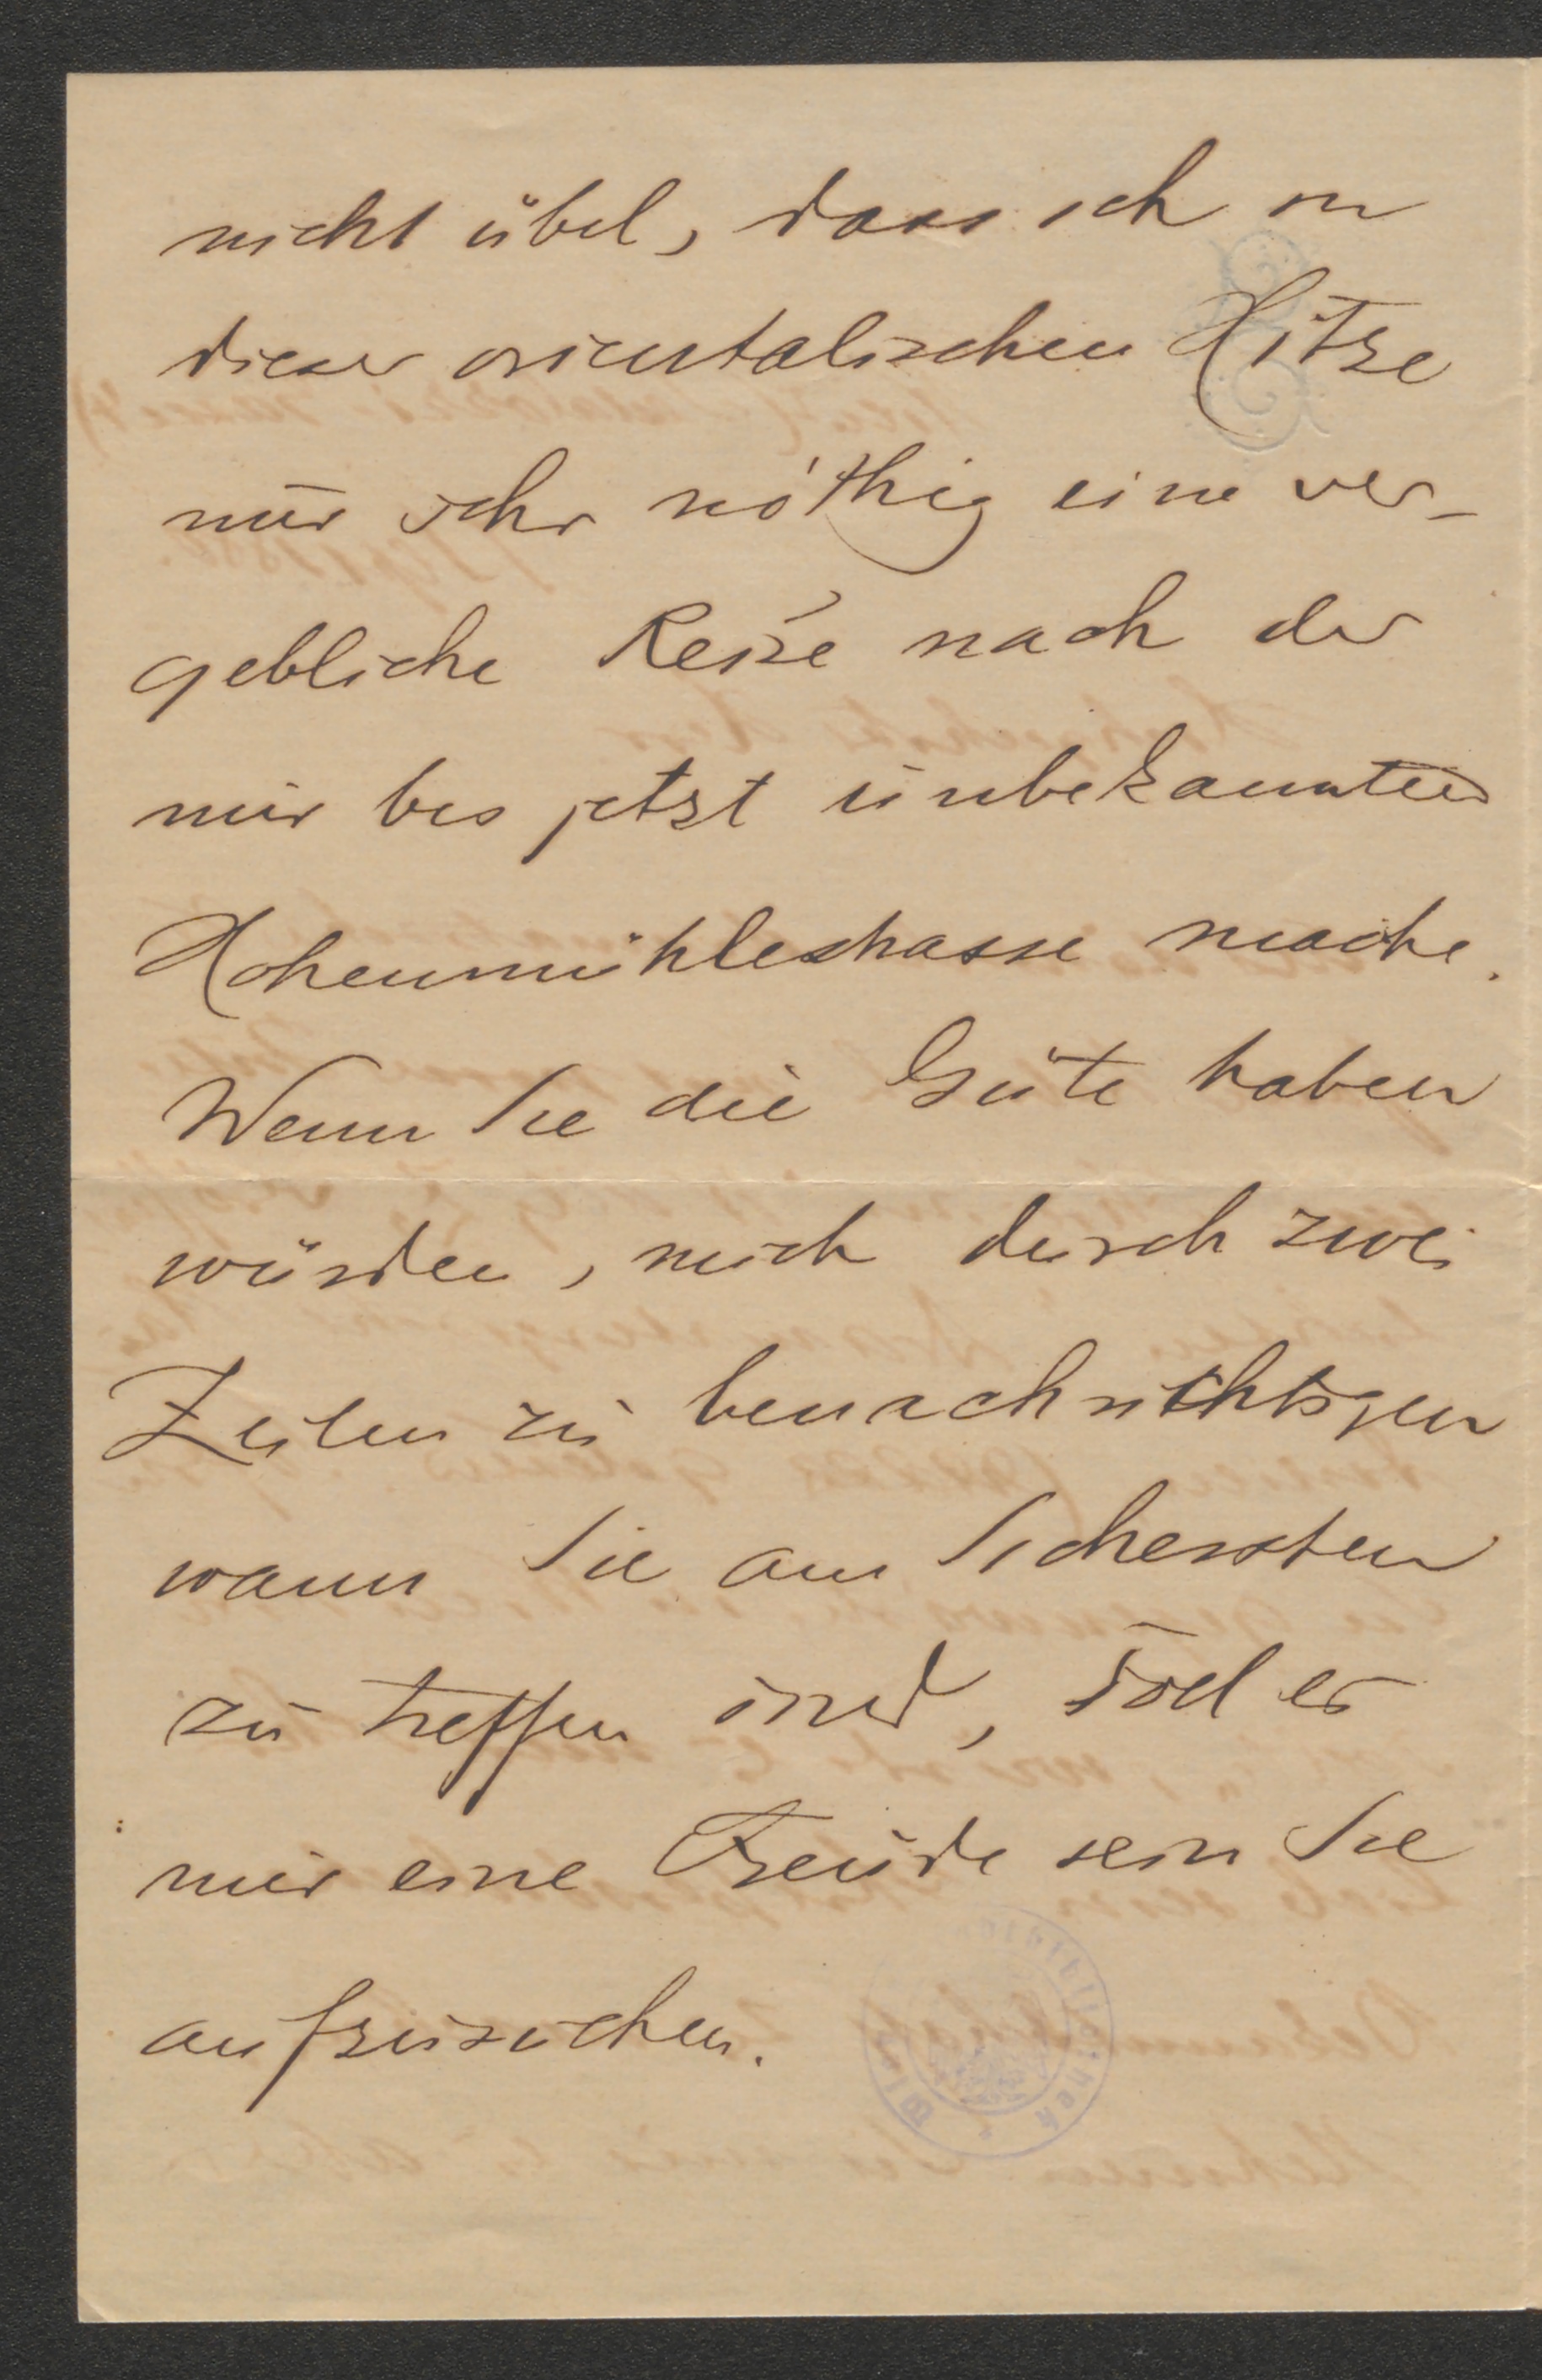 nicht übel, dass ich in
dieser orientalischen Hitze
nur sehr nöthig eine ver-
gebliche Reise nach der
mir bis jetzt unbekannten
Hohenmühlestrasse mache.
Wenn Sie die Güte haben
würden, mich durch zwei
Zeilen zu benachrichtigen
wann Sie am Sichersten
zu treffen sind, soll es
mir eine Freude sein Sie
aufzusuchen.